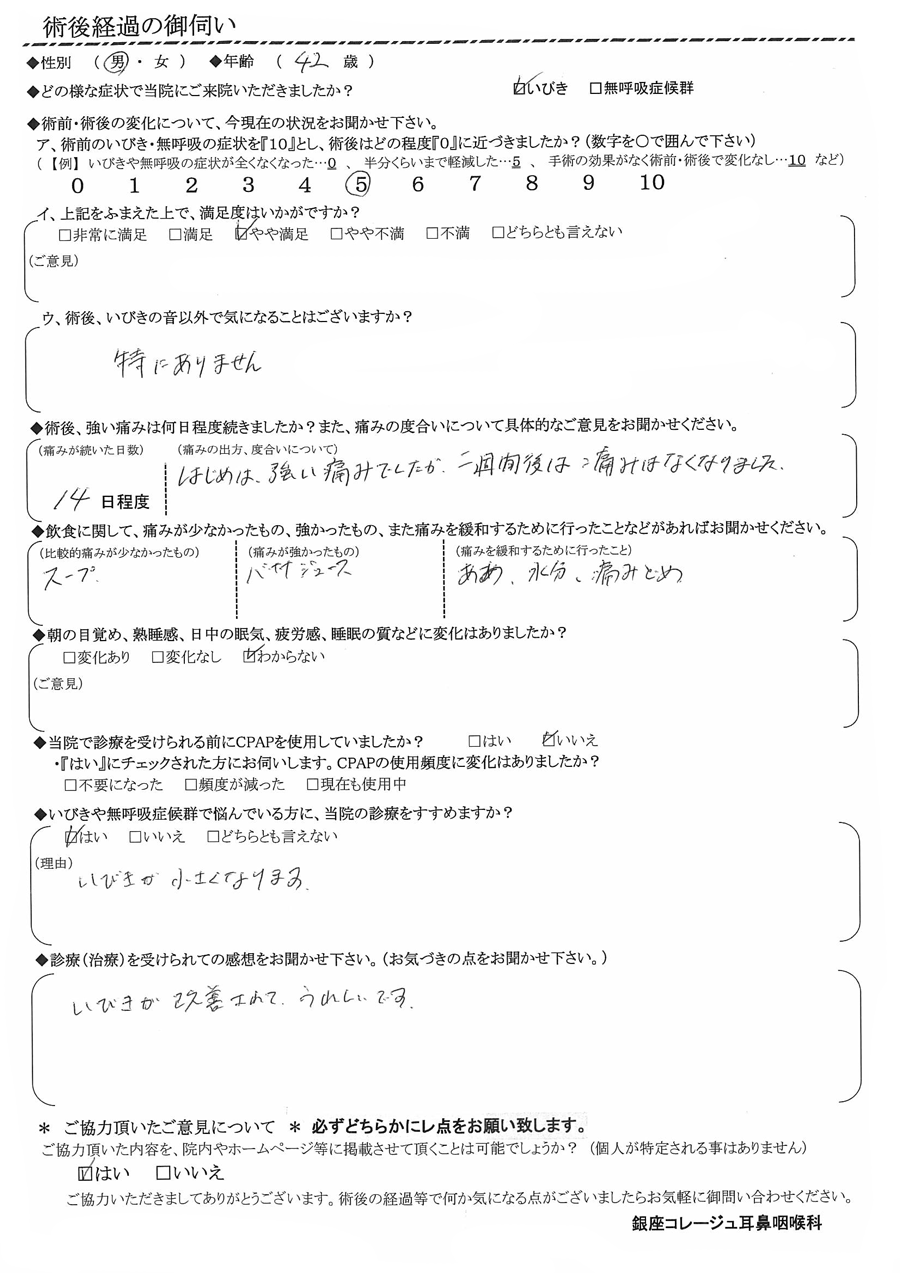 術後経過の御伺い
◆性別 （ 男 ・ 女 ） ◆年齢 （ 42 歳 ）
◆どの様な症状で当院にご来院いただきましたか？ ☑いびき □無呼吸症候群
◆術前・術後の変化について、今現在の状況をお聞かせ下さい。
ア、術前のいびき・無呼吸の症状を『10』とし、術後はどの程度『0』に近づきましたか？(数字を○で囲んで下さい)
（【例】 いびきや無呼吸の症状が全くなくなった…0 、 半分くらいまで軽減した…5 、 手術の効果がなく術前・術後で変化なし…10 など）
0 1 2 3 4 5 6 7 8 9 10
イ、上記をふまえた上で、満足度はいかがですか？
□非常に満足 □満足 ☑やや満足 □やや不満 □不満 □どちらとも言えない
（ご意見）
ウ、術後、いびきの音以外で気になることはございますか？
特にありません
◆術後、強い痛みは何日程度続きましたか？また、痛みの度合いについて具体的なご意見をお聞かせください。
（痛みが続いた日数） （痛みの出方、度合いについて）
はじめは、強い痛みでしたが、二週間後は 痛みはなくなりました.
14 日程度
◆飲食に関して、痛みが少なかったもの、強かったもの、また痛みを緩和するために行ったことなどがあればお聞かせください。
（比較的痛みが少なかったもの） （痛みが強かったもの） （痛みを緩和するために行ったこと）
スープ. ジュース あめ、水分、痛みどめ
◆朝の目覚め、熟睡感、日中の眠気、疲労感、睡眠の質などに変化はありましたか？
□変化あり □変化なし ☑わからない
（ご意見）
◆当院で診療を受けられる前にCPAPを使用していましたか？ □はい ☑いいえ
・『はい』にチェックされた方にお伺いします。CPAPの使用頻度に変化はありましたか？
□不要になった □頻度が減った □現在も使用中
◆いびきや無呼吸症候群で悩んでいる方に、当院の診療をすすめますか？
☑はい □いいえ □どちらとも言えない
（理由）
いびきが 小さくなります.
◆診療（治療）を受けられての感想をお聞かせ下さい。（お気づきの点をお聞かせ下さい。）
いびきが 改善されて. うれしいです.
＊ ご協力頂いたご意見について ＊ 必ずどちらかにレ点をお願い致します。
ご協力頂いた内容を、院内やホームページ等に掲載させて頂くことは可能でしょうか？ （個人が特定される事はありません）
☑はい □いいえ
ご協力いただきましてありがとうございます。術後の経過等で何か気になる点がございましたらお気軽に御問い合わせください。
銀座コレージュ耳鼻咽喉科